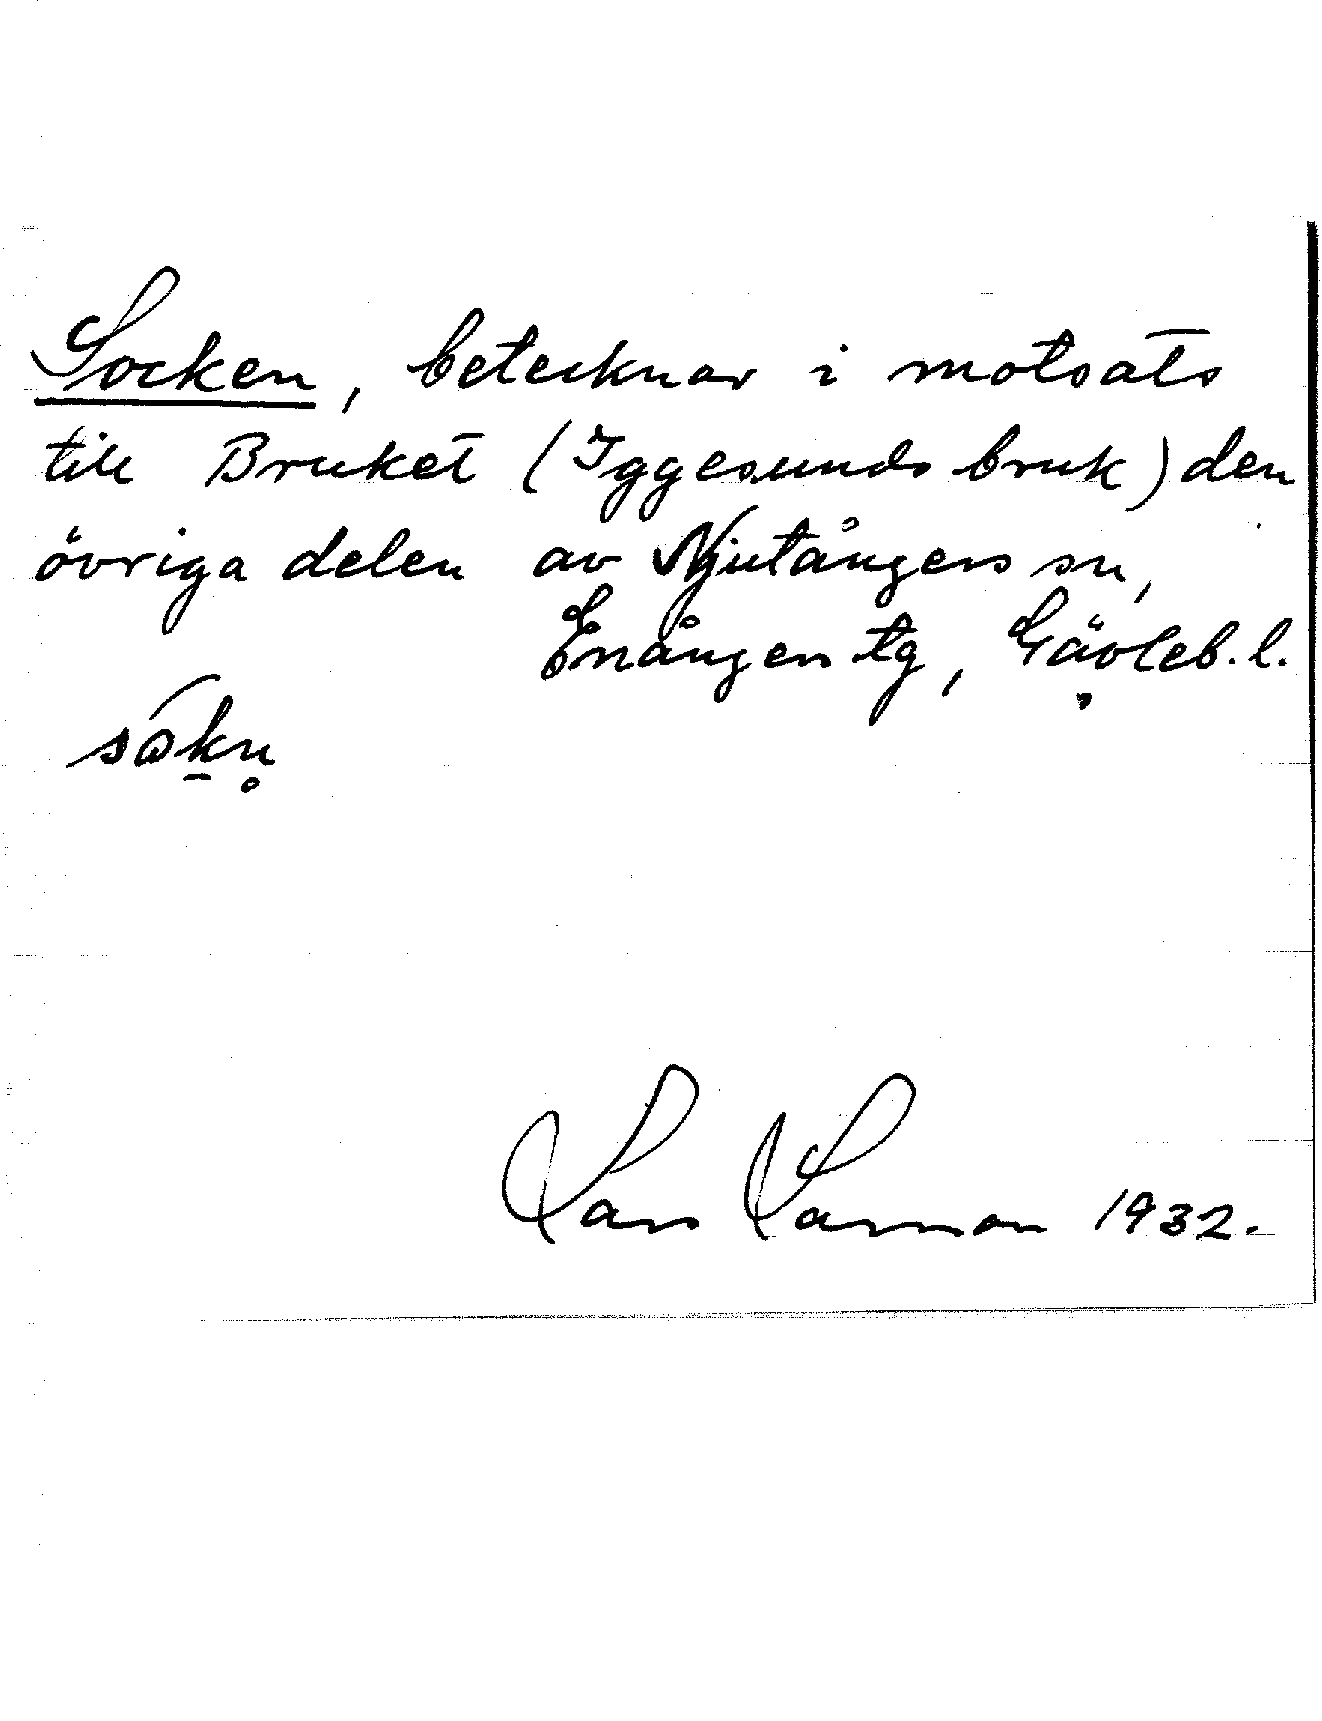 Socken, betecknar i motsats
till Bruket (Iggesunds bruk) den
övriga delen av Njutångers sn,
Enångers tg, Gävleb. l.
såkn̥
Lars Larsson 1932.